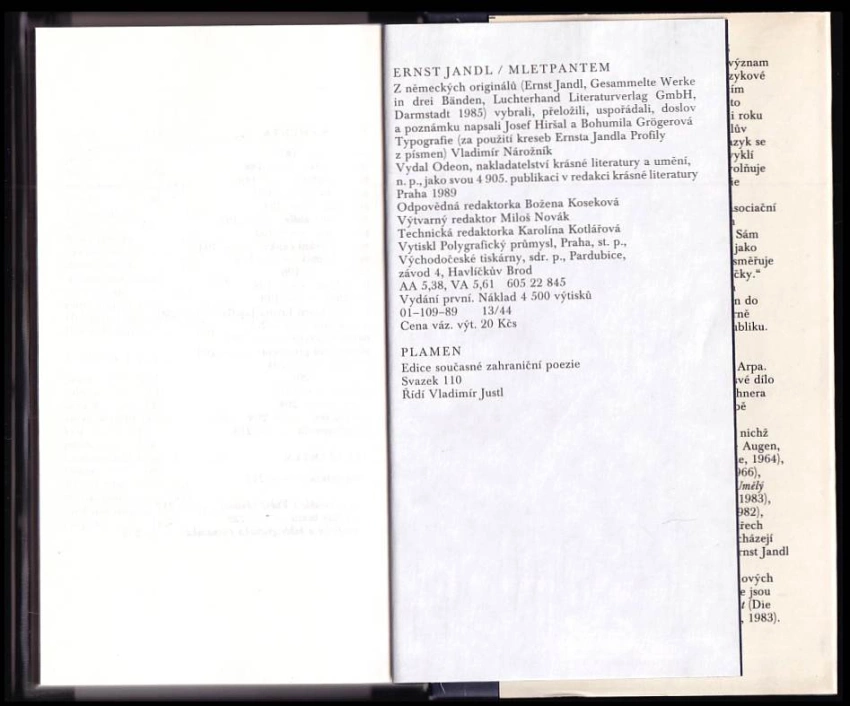 ERNST JANDL / MLETPANTEM
Z německých originálů (Ernst Jandl, Gesammelte Werke
in drei Bänden, Luchterhand Literaturverlag GmbH,
Darmstadt 1985) vybrali, přeložili, uspořádali, doslov
a poznámku napsali Josef Hiršal a Bohumila Grögerová
Typografie (za použití kreseb Ernsta Jandla Profily
z písmen) Vladimír Nárožník
Vydal Odeon, nakladatelství krásné literatury a umění,
n. p., jako svou 4 905. publikaci v redakci krásné literatury
Praha 1989
Odpovědná redaktorka Božena Koseková
Výtvarný redaktor Miloš Novák
Technická redaktorka Karolína Kotlářová
Vytiskl Polygrafický průmysl, Praha, st. p.,
Východočeské tiskárny, sdr. p., Pardubice,
závod 4, Havlíčkův Brod
AA 5,38, VA 5,61 605 22 845
Vydání první. Náklad 4 500 výtisků
01–109–89 13/44
Cena váz. výt. 20 Kčs
PLAMEN
Edice současné zahraniční poezie
Svazek 110
Řídí Vladimír Justl
význam
zykové
ím
to
i roku
lův
azyk se
vyklí
olňuje
ie
sociační
Sám
jako
směřuje
čky.“
n do
rně
ubliku.
Arpa.
své dílo
hnera
bě
nichž
Augen,
e, 1964),
966),
Umělý
1983),
982),
řech
cházejí
rnst Jandl
ových
e jsou
t (Die
, 1983).